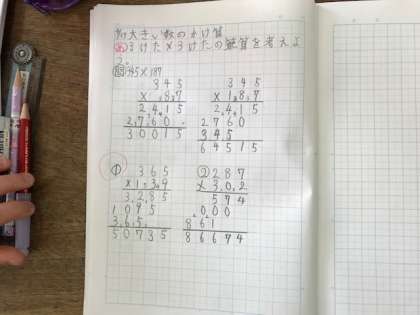 大きい数のかけ算
3けた×3けたの筆算を考えよ
う。
問345×187
345
×187
2415
2760
30015
345
×187
2415
2760
345
64515
① 365
×139
3285
1095
365
50735
② 287
×302
574
000
861
86674